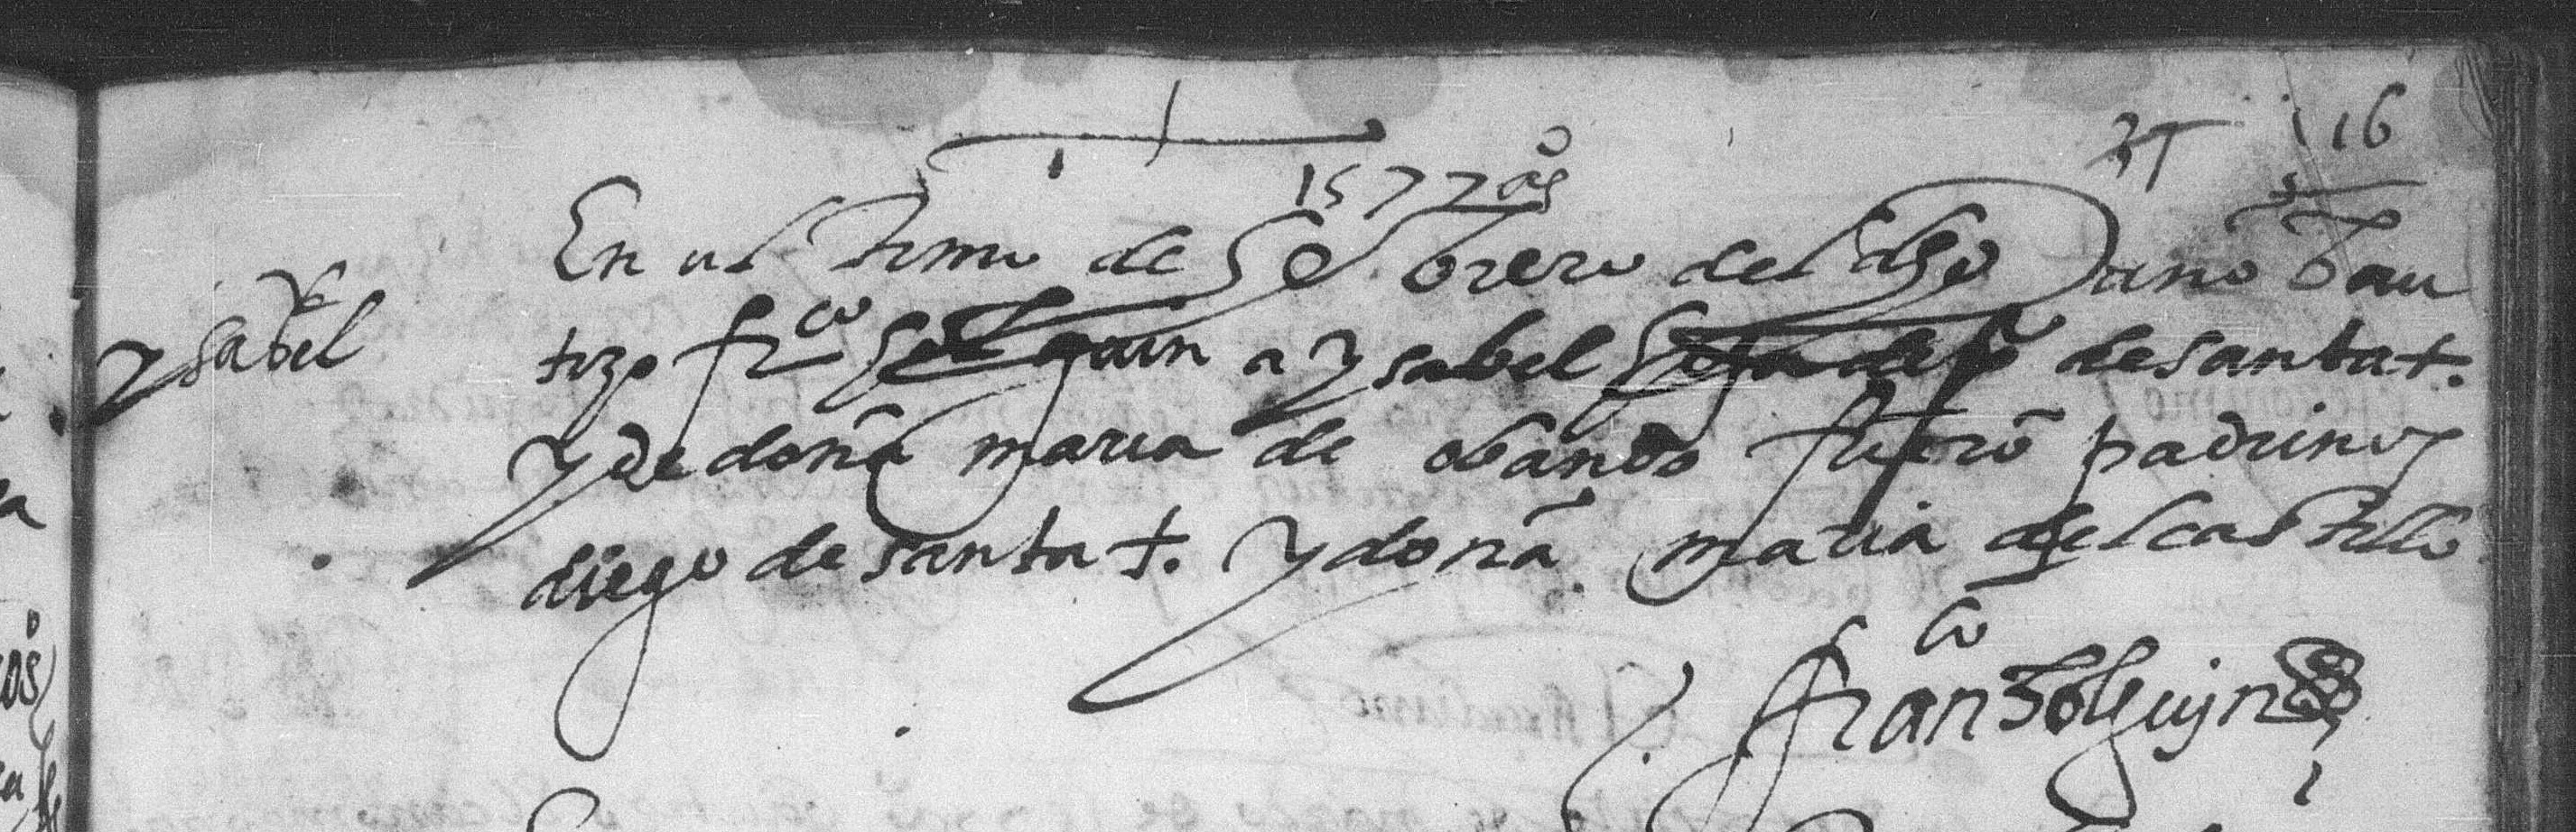 1577 as
16
Ysabel
En ultimo de febrero del dho año bau
tizo frco holguin a Ysabel hija de po de santa +.
y de doña maria de obando fuerō padrinos
diego de santa +. y doña maria del castillo
franco holguin